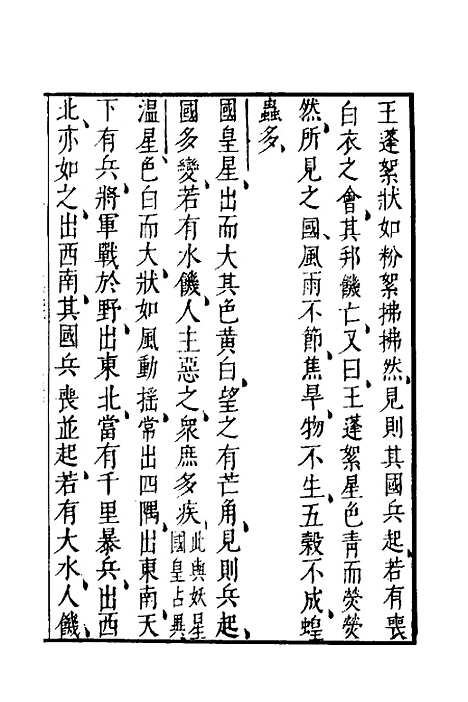 王蓬絮狀如粉絮拂拂然見則其國兵起若有喪
白衣之會其邦饑亡又曰王蓬絮星色青而熒熒
然所見之國風雨不節焦旱物不生五穀不成蝗
蟲多
國皇星出而大其色黃白望之有芒角見則兵起
國多變若有水饑人主惡之衆庶多疾此與妖星國皇占異
温星色白而大狀如風動搖常出四隅出東南天
下有兵將軍戰於野出東北當有千里暴兵出西
北亦如之出西南其國兵喪並起若有大水人饑